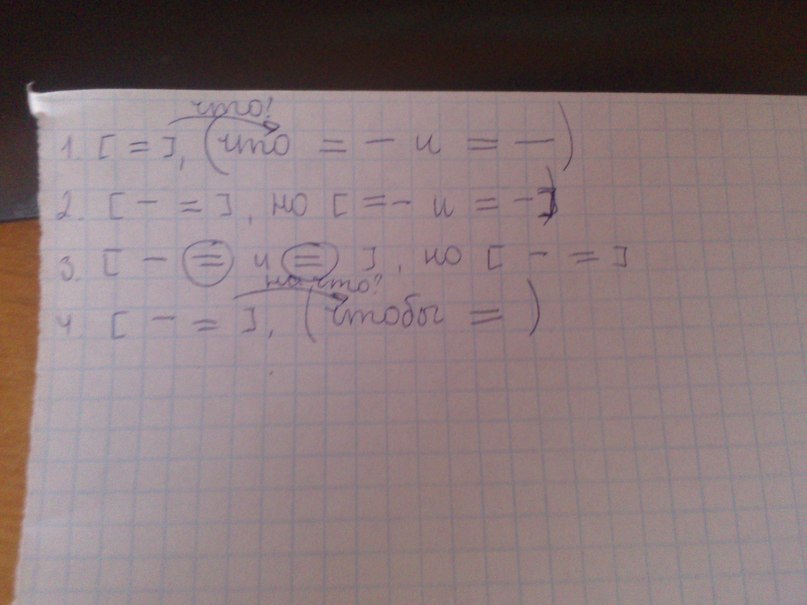 что?
1. [ = ], (что = – и = –)
2. [ – = ], но [ = – и = – ]
3. [ – = и = ], но [ – = ]
на что?
4. [ – = ], (чтобы = )